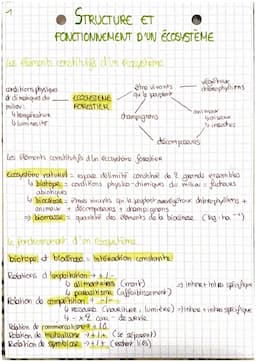 1
STRUCTURE ET
FONCTIONNEMENT D'UN ÉCOSYSTÈME
Les éléments constitutifs d'un écosystème
conditions physiques
et climatiques du
milieu
↳ température
↳ luminosité
ECOSYSTEME
FORESTIER
êtres vivants
qui le peuplent
végétaux
chlorophylliens
champignons
animaux
décomposeurs
Les éléments constitutifs d'un écosystème forestier
Ecosystème naturel = espace délimité constitué de 2 grands ensembles
↳ biotope = conditions physico-chimiques du milieu = facteurs
abiotiques
↳ biocénose = êtres vivants qui le peuplent végétaux chlorophylliens +
animaux + décomposeurs + champignons
↳ biomasse = quantité des éléments de la biocénose. (kg.ha⁻¹)
Le fonctionnement d'un écosystème
biotope et biocénose = interaction constante
Relations d'exploitation → + / -
↳ alimentaires (mort)
↳ parasitisme (affaiblissement)
Relation de compétition → - / -
↳ ressource (nourriture / lumière)
Relation de commensalisme + / 0
Relation de mutualisme → + / + (se séparent)
Relation de symbiose → + / + (restent liés)